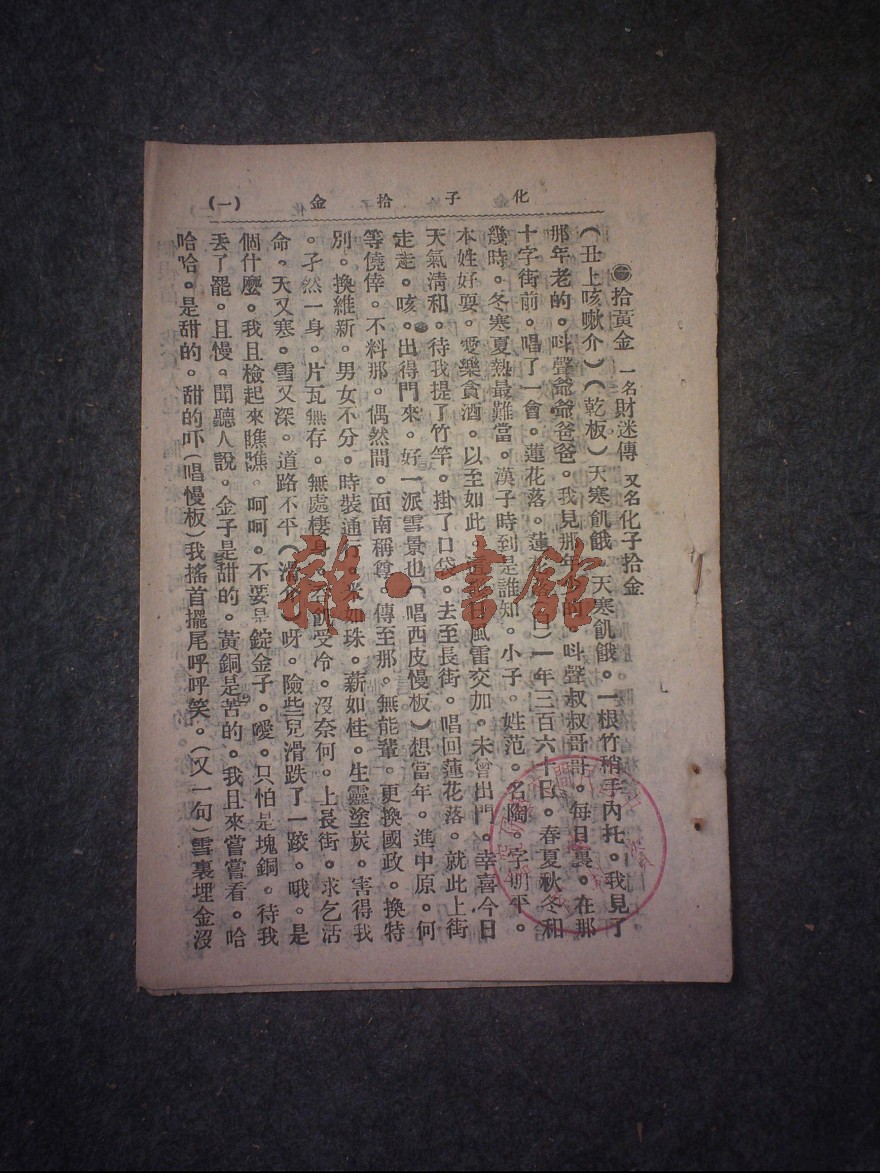 化子拾金 (一)
拾黃金 一名財迷傳 又名化子拾金
(丑上咳嗽介)(乾板)天寒飢餓。天寒飢餓。一根竹稍手內托。我見了
那年老的。呌聲爺爺爸爸。我見那年 的 呌聲叔叔哥哥。每日裏。在那
十字街前。唱了一會。蓮花落。蓮花 白)一年三百六十日。春夏秋冬和
幾時。冬寒夏熱最難當。漢子時到是誰知。小子。姓范。名陶。字 平。
本姓好耍。愛樂貪酒。以至如此。 風雷交加。未曾出門。幸喜今日
天氣清和。待我提了竹竿。掛了口袋。去至長街。唱回蓮花落。就此上街
走走。咳。出得門來。好一派雪景也(唱西皮慢板)想當年。進中原。何
等僥倖。不料那。偶然間。面南稱尊。傳至那。無能輩。更換國政。換特
別。換維新。男女不分。時裝通行。米如珠。薪如桂。生靈塗炭。害得我
。孑然一身。片瓦無存。無處棲身。 飢受冷。沒奈何。上長街。求乞活
命。天又寒。雪又深。道路不平(滑介)呀。險些兒滑跌了一跤。哦。是
個什麼。我且檢起來瞧瞧。呵呵。不要是錠金子。噯。只怕是塊銅。待我
丟了罷。且慢。聞聽人說。金子是甜的。黃銅是苦的。我且來嘗嘗看。哈
哈哈。是甜的。甜的吓(唱慢板)我搖首擺尾呼呼笑。(又一句)雪裏埋金沒
雜·書館